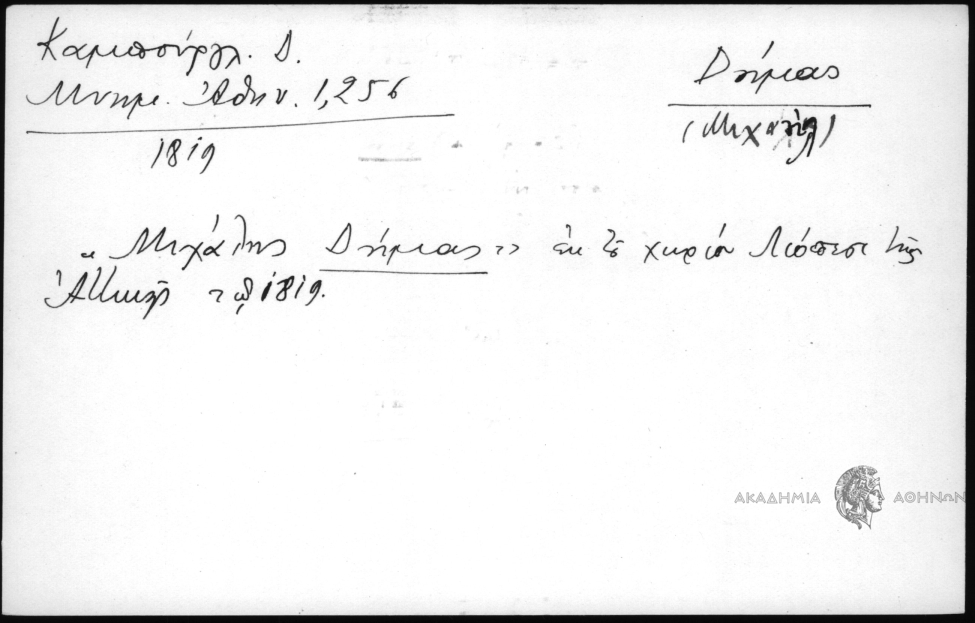 Καμπούρογλ. Δ.
Μνημ. Ἀθην. 1,256
1819
Δήμιας
(Μιχαήλ)
« Μιχάλης Δήμιας » ἐκ τοῦ χωρίου Λιόπεσι τῆς
Ἀττικῆς τῷ 1819.
ΑΚΑΔΗΜΙΑ ΑΘΗΝΩΝ